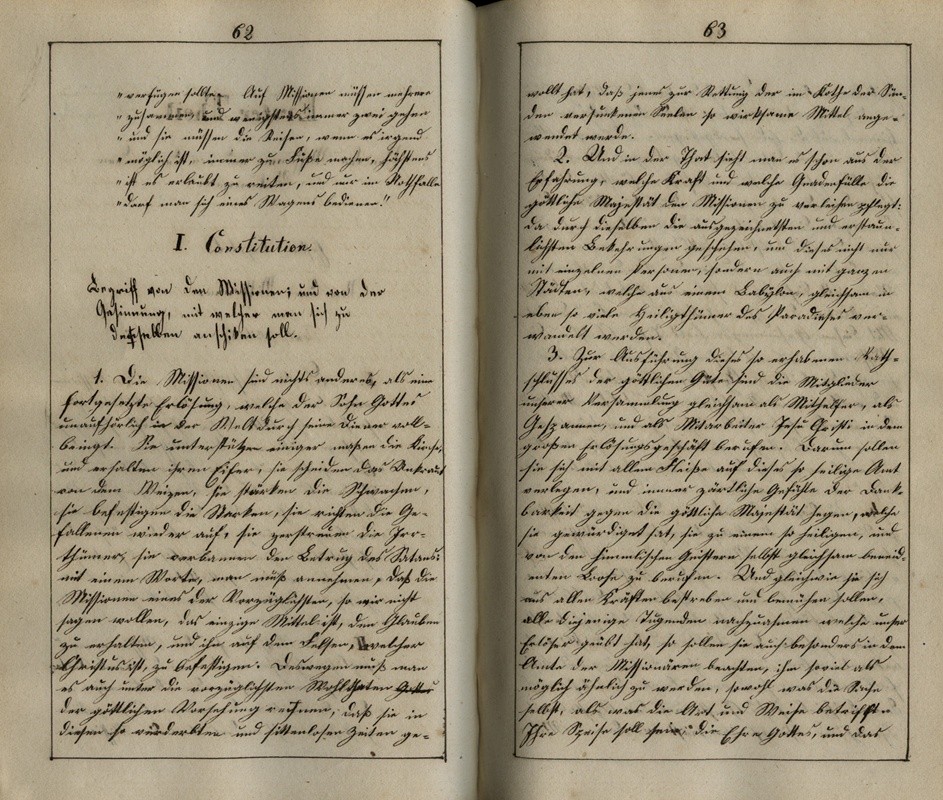 62
" verfügen sollte. Auf Missionen müssen mehrere
" zusammen, und wenigstens immer zwei gehen
" und sie müssen die Reisen, wenn es irgend
" möglich ist, immer zu Fuße machen, höchstens
" ist es erlaubt zu reiten, und nur im Nothfalle
" darf man sich eines Wagens bedienen."
I. Constitution.
Begriff von den Missionen; und von der
Gesinnung, mit welcher man sich zu
denselben anschiken soll.
1. Die Missionen sind nichts anderes, als eine
fortgesetzte Erlösung, welche der Sohn Gottes
unaufhörlich in der Welt durch seine Diener voll-
bringt. Sie unterstützen einiger maßen die Kirche,
und erhalten ihren Eifer; sie scheiden das Unkraut
von dem Weizen, sie stärken die Schwachen,
sie befestigen die Starken, sie richten die Ge-
fallenen wieder auf, sie zerstreuen die Irr-
thümer, sie verbannen den Betrug des Satans
mit einem Worte, man muß annehmen, daß die
Missionen eines der Vorzüglichsten, so wir nicht
sagen wollen, das einzige Mittel ist, den Glauben
zu erhalten, und ihn auf dem Felsen, welcher
Christus ist, zu befestigen. Deswegen muß man
es auch unter die vorzüglichsten Wohlthaten
der göttlichen Vorsehung rechnen, daß sie in
diesen so verderbten und sittenlosen Zeiten ge-
63
wollt hat, daß jenes zur Rettung der im Kothe der Sün-
den versunkenen Seelen so wirksame Mittel ange-
wendet werde.
2. Und in der That sieht man es schon aus der
Erfahrung, welche Kraft und welche Gnadenfülle die
göttliche Majestät den Missionen zu verleihen pflegt:
da durch dieselben die ausgezeichnetsten und erstaun-
lichsten Bekehrungen geschehen, und dieses nicht nur
mit einzelnen Personen, sondern auch mit ganzen
Städten, welche aus einem Babylon, gleichsam in
eben so viele Heiligthümer des Paradieses ver-
wandelt wurden.
3. Zur Ausführung dieses so erhabenen Rath-
schlusses der göttlichen Güte sind die Mitglieder
unserer Versammlung gleichsam als Mithelfer, als
und als Mitarbeiter Jesu Christi in dem
großen Erlösungsgeschäft berufen. Darum sollen
sie sich mit allem Fleiße auf dieses so heilige Amt
verlegen, und immer zärtliche Gefühle der Dank-
barkeit gegen die göttliche Majestät hegen, welche
sie gewürdiget hat, sie zu einem so heiligen, und
von den himmlischen Geistern selbst gleichsam beneid-
enten Loose zu berufen. Und gleichwie sie sich
aus allen Kräften bestreben und bemühen sollen,
alle diejenige Tugenden nachzuahmen welche unser
Erlöser geübt hat, so sollen sie auch besonders in dem
Amte der Missionären trachten, ihm soviel als
möglich ähnlich zu werden, sowohl was die Sache
selbst, als was die Art und Weise betrifft.
Ihre Speise soll sein, die Ehre Gottes, und das